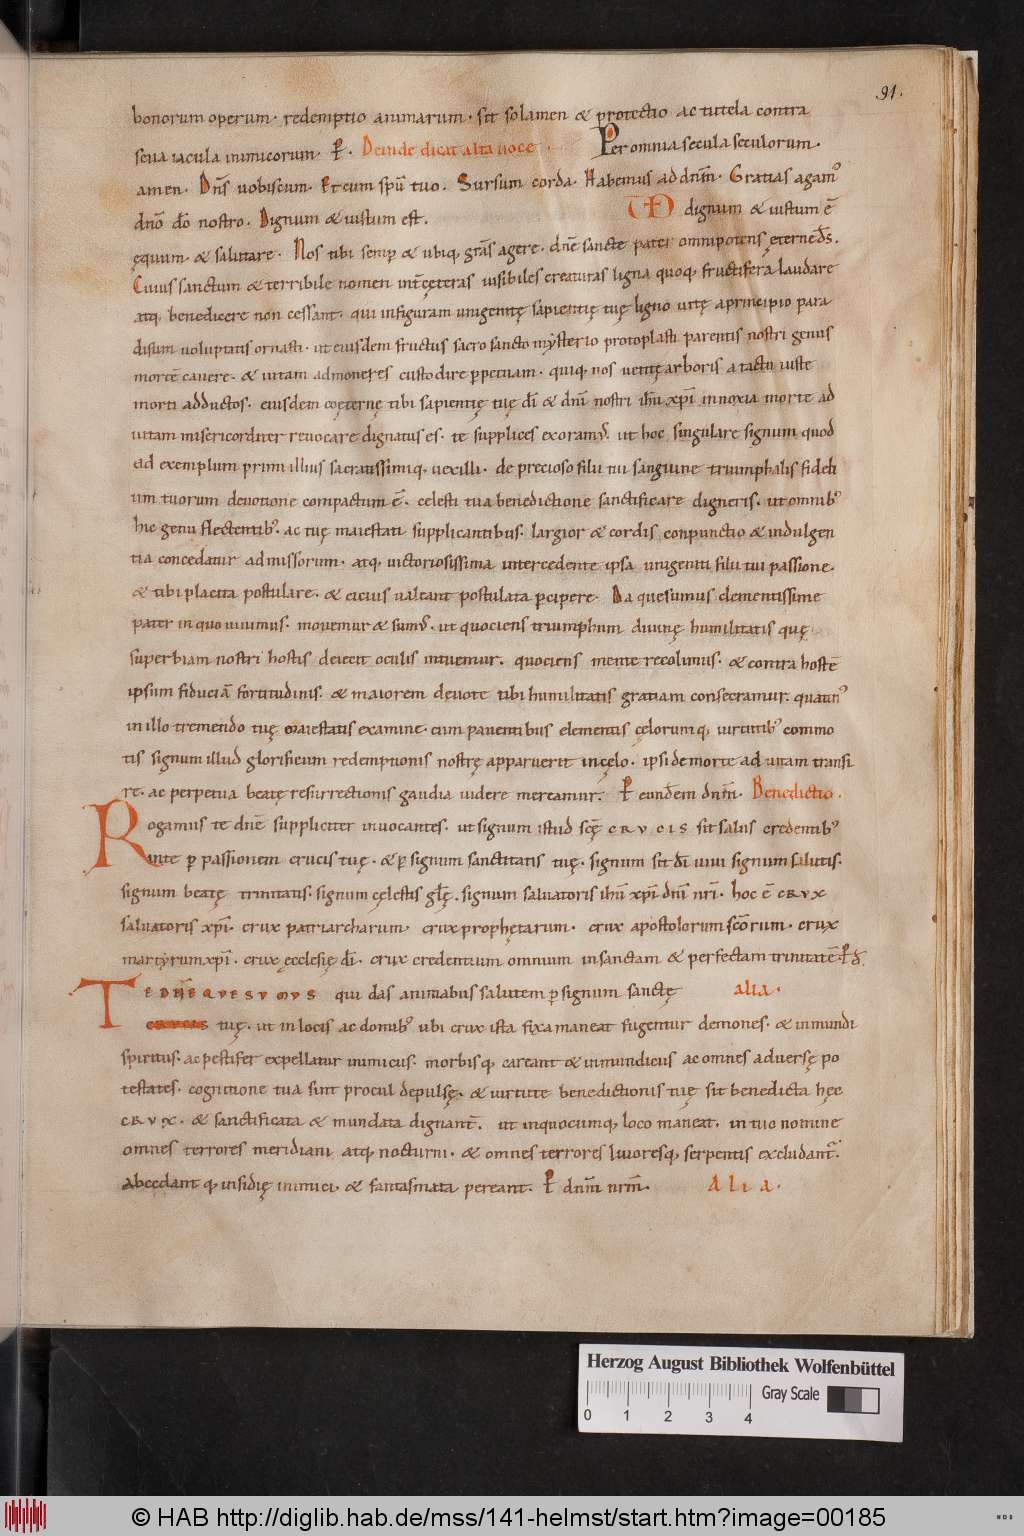 91.
bonorum operum · redemptio animarum · sit solamen & protectio ac tutela contra
seua iacula inimicorum · P̄ · Deinde dicat alta uoce · Per omnia secula seculorum ·
amen · Dn̄s uobiscum · Et cum spū tuo . Sursum corda . Habemus ad dnm̄ . Gratias agam᾽
dnō dō nostro . Dignum & iustum est .
dignum & iustum ē
ęquum & salutare . Nos tibi semp & ubiq, grās agere . dnē sancte pater omnipotens ęterne ds̄ .
Cuius sanctum & terribile nomen int̄ cęteras uisibiles creaturas ligna quoq, fructifera laudare
atq, benedicere non cessant . qui in figuram unigenitę sapientię tuę ligno uitę a principio para
disum uoluptatis ornasti . ut eiusdem fructus sacro sancto mysterio protoplasti parentis nostri genus
mortē cauere . & uitam admoneres custodire ppetuam . quiq, nos uetitę arboris a tactu iuste
morti adductos . eiusdem coęternę tibi sapientię tuę dī & dnī nostri ihū xpī innoxia morte ad
uitam misericorditer reuocare dignatus es . te supplices exoram᾽ . ut hoc singulare signum quod
ad exemplum primi illius sacratissimiq, uexilli . de precioso filii tui sanguine triumphalis fideli
um tuorum deuotione compactum ē . celesti tua benedictione sanctificare digneris . ut omnib᾽
hic genu flectentib᾽ . ac tuę maiestati supplicantibus . largior & cordis conpunctio & indulgen
tia concedatur admissorum . atq, uictoriosissima intercedente ipsa unigeniti filii tui passione .
& tibi placita postulare . & cicius ualeant postulata pcipere . Da quesumus clementissime
pater in quo uiuimus . mouemur & sum᾽ . ut quociens triumphum diuinę humilitatis quę
superbiam nostri hostis deiecit oculis intuemur . quociens mente recolimus . & contra hostē
ipsum fiduciā fortitudinis . & maiorem deuote tibi humilitatis gratiam consecramur . quatin᾽
in illo tremendo tuę maiestatis examine . cum pauentibus elementis cęlorumq, uirtutib᾽ commo
tis signum illud glorificum redemptionis nostrę apparuerit in cęlo . ipsi de morte ad uitam transi
re . ac perpetua beatę resurrectionis gaudia uidere mereamur . P̄ eundem dnm̄ . Benedictio .
Rogamus te dnē suppliciter inuocantes . ut signum istud scę CRVCIS sit salus credentib᾽
in te p passionem crucis tuę . & p signum sanctitatis tuę . signum sit dī uiui signum salutis .
signum beatę trinitatis . signum cęlestis glę . signum saluatoris ihū xpī dnī nrī . hoc ē CRVX
saluatoris xpī . crux patriarcharum crux prophętarum . crux apostolorum scōrum . crux
martyrum xpī . crux ęcclesię dī . crux credentium omnium in sanctam & perfectam trinitatē .
TE DNE QVESVMVS qui das animabus salutem p signum sanctę alia .
crucis tuę . ut in locis ac domib᾽ ubi crux ista fixa maneat fugentur demones . & inmundi
spiritus . ac pestifer expellatur inimicus . morbisq, careant & inmundicius ac omnes aduersę po
testates . cognitione tua sint procul depulsę . & uirtute benedictionis tuę sit benedicta hęc
CRVX . & sanctificata & mundata dignant̄ . ut inquocumq, loco maneat . in tuo nomine
omnes terrores meridiani atq, nocturni . & omnes terrores liuoresq, serpentis excludant᷑ .
Abcedant q, insidię inimici . & fantasmata pereant . P̄ dnm̄ nrm̄ . Alia .
Herzog August Bibliothek Wolfenbüttel
Gray Scale
0 1 2 3 4
© HAB http://diglib.hab.de/mss/141-helmst/start.htm?image=00185